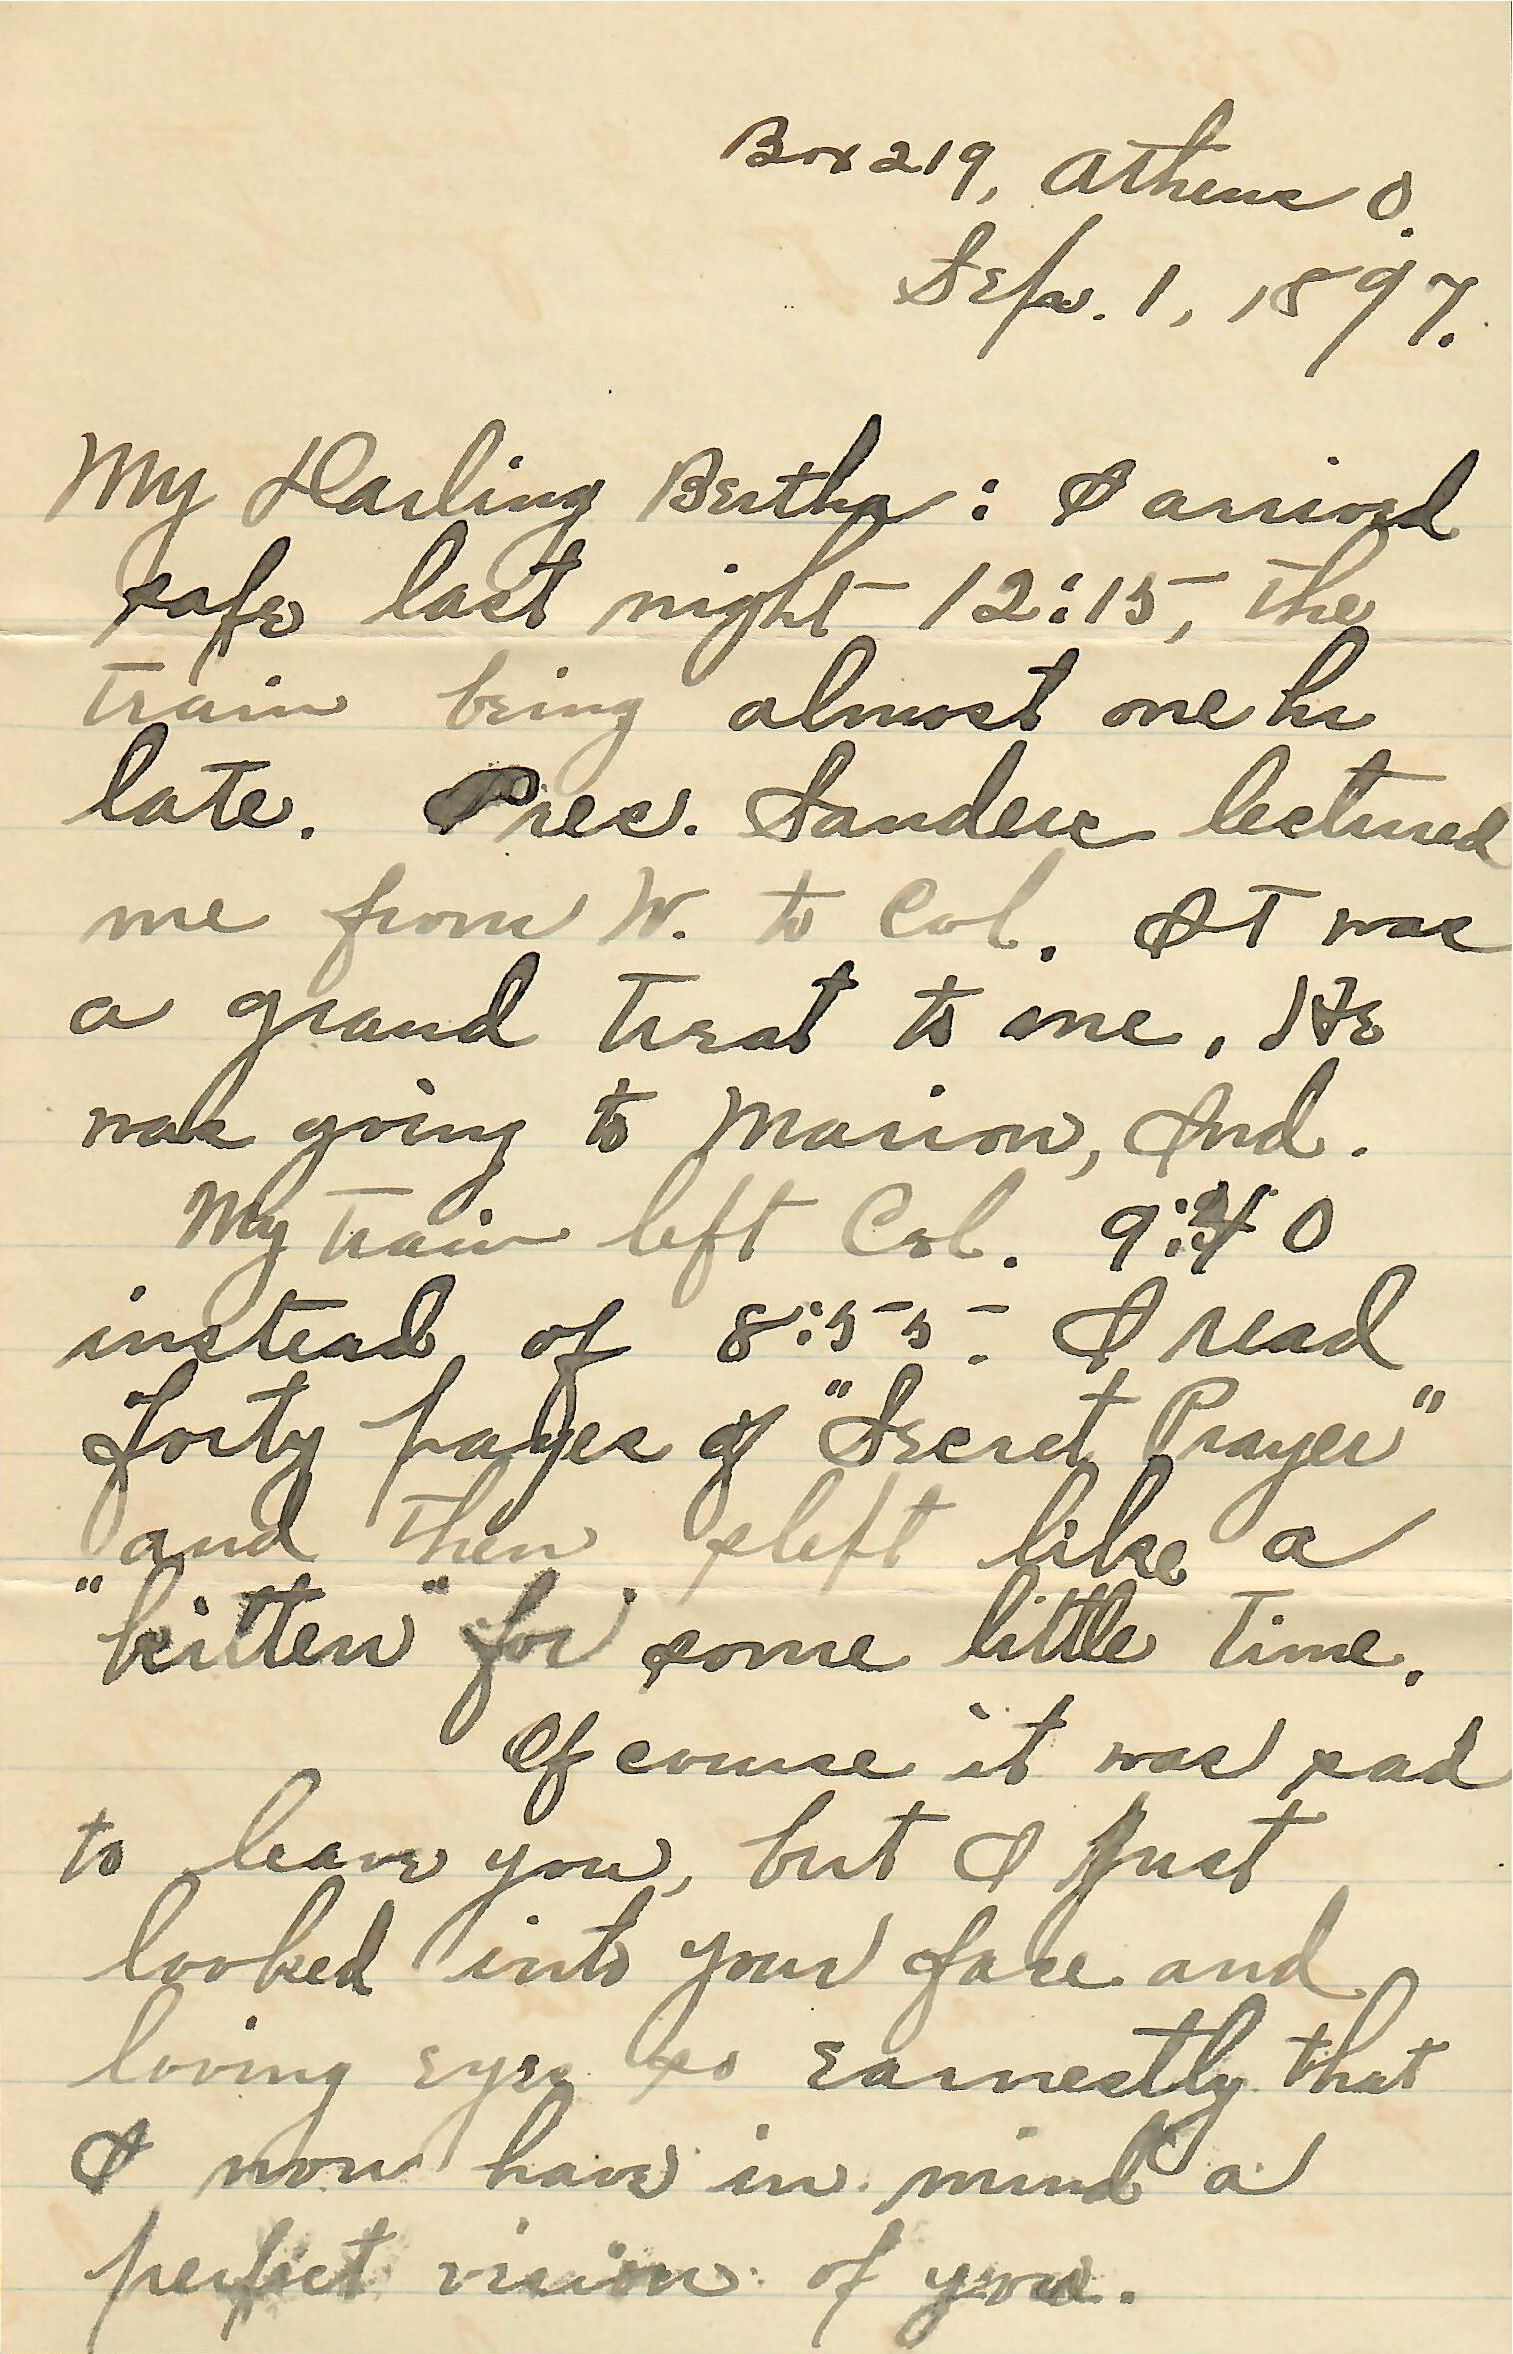 Box 219, Athens O.
Sep. 1, 1897.
My Darling Bertha: I arrived
safe last night 12:15, the
train being almost one hr
late. Pres. Sanders lectured
me from W. to Col. It was
a grand treat to me. He
was going to Marion, Ind.
My train left Col. 9:40
instead of 8:55. I read
forty pages of "Secret Prayer"
and then sleft like a
"kitten" for some little time.
Of course it was sad
to leave you, but I just
looked into your face and
loving eyes so earnestly that
I now have in mind a
perfect vision of you.